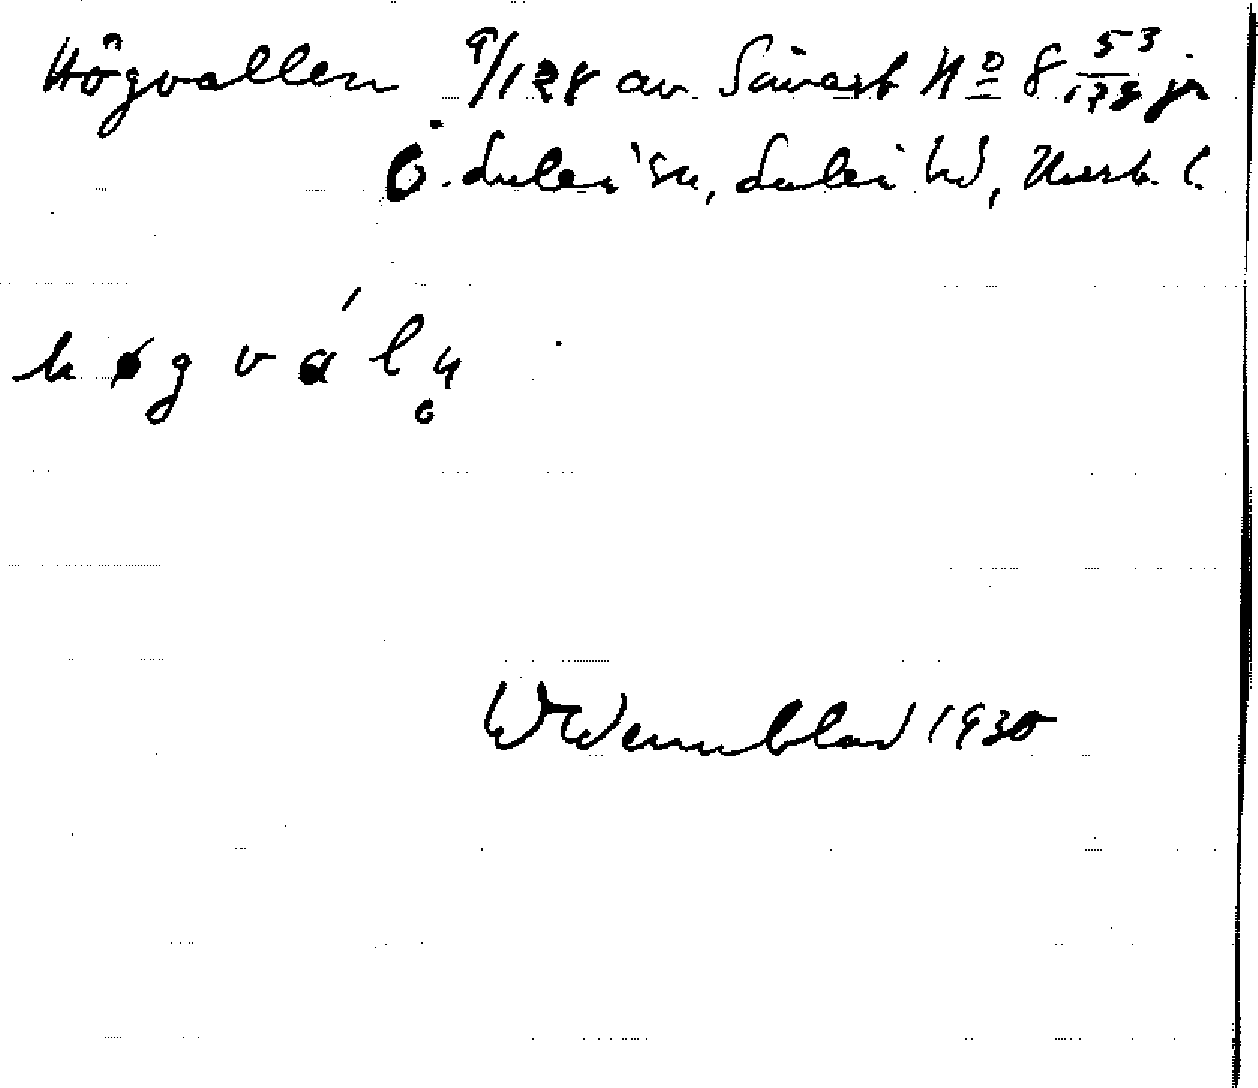 Högvallen 9/128 av Sävast No 8 53/178 jr
Ö. Luleå sn, Luleå hd, Norrb. l.
høgválņ
W Wennblad 1930